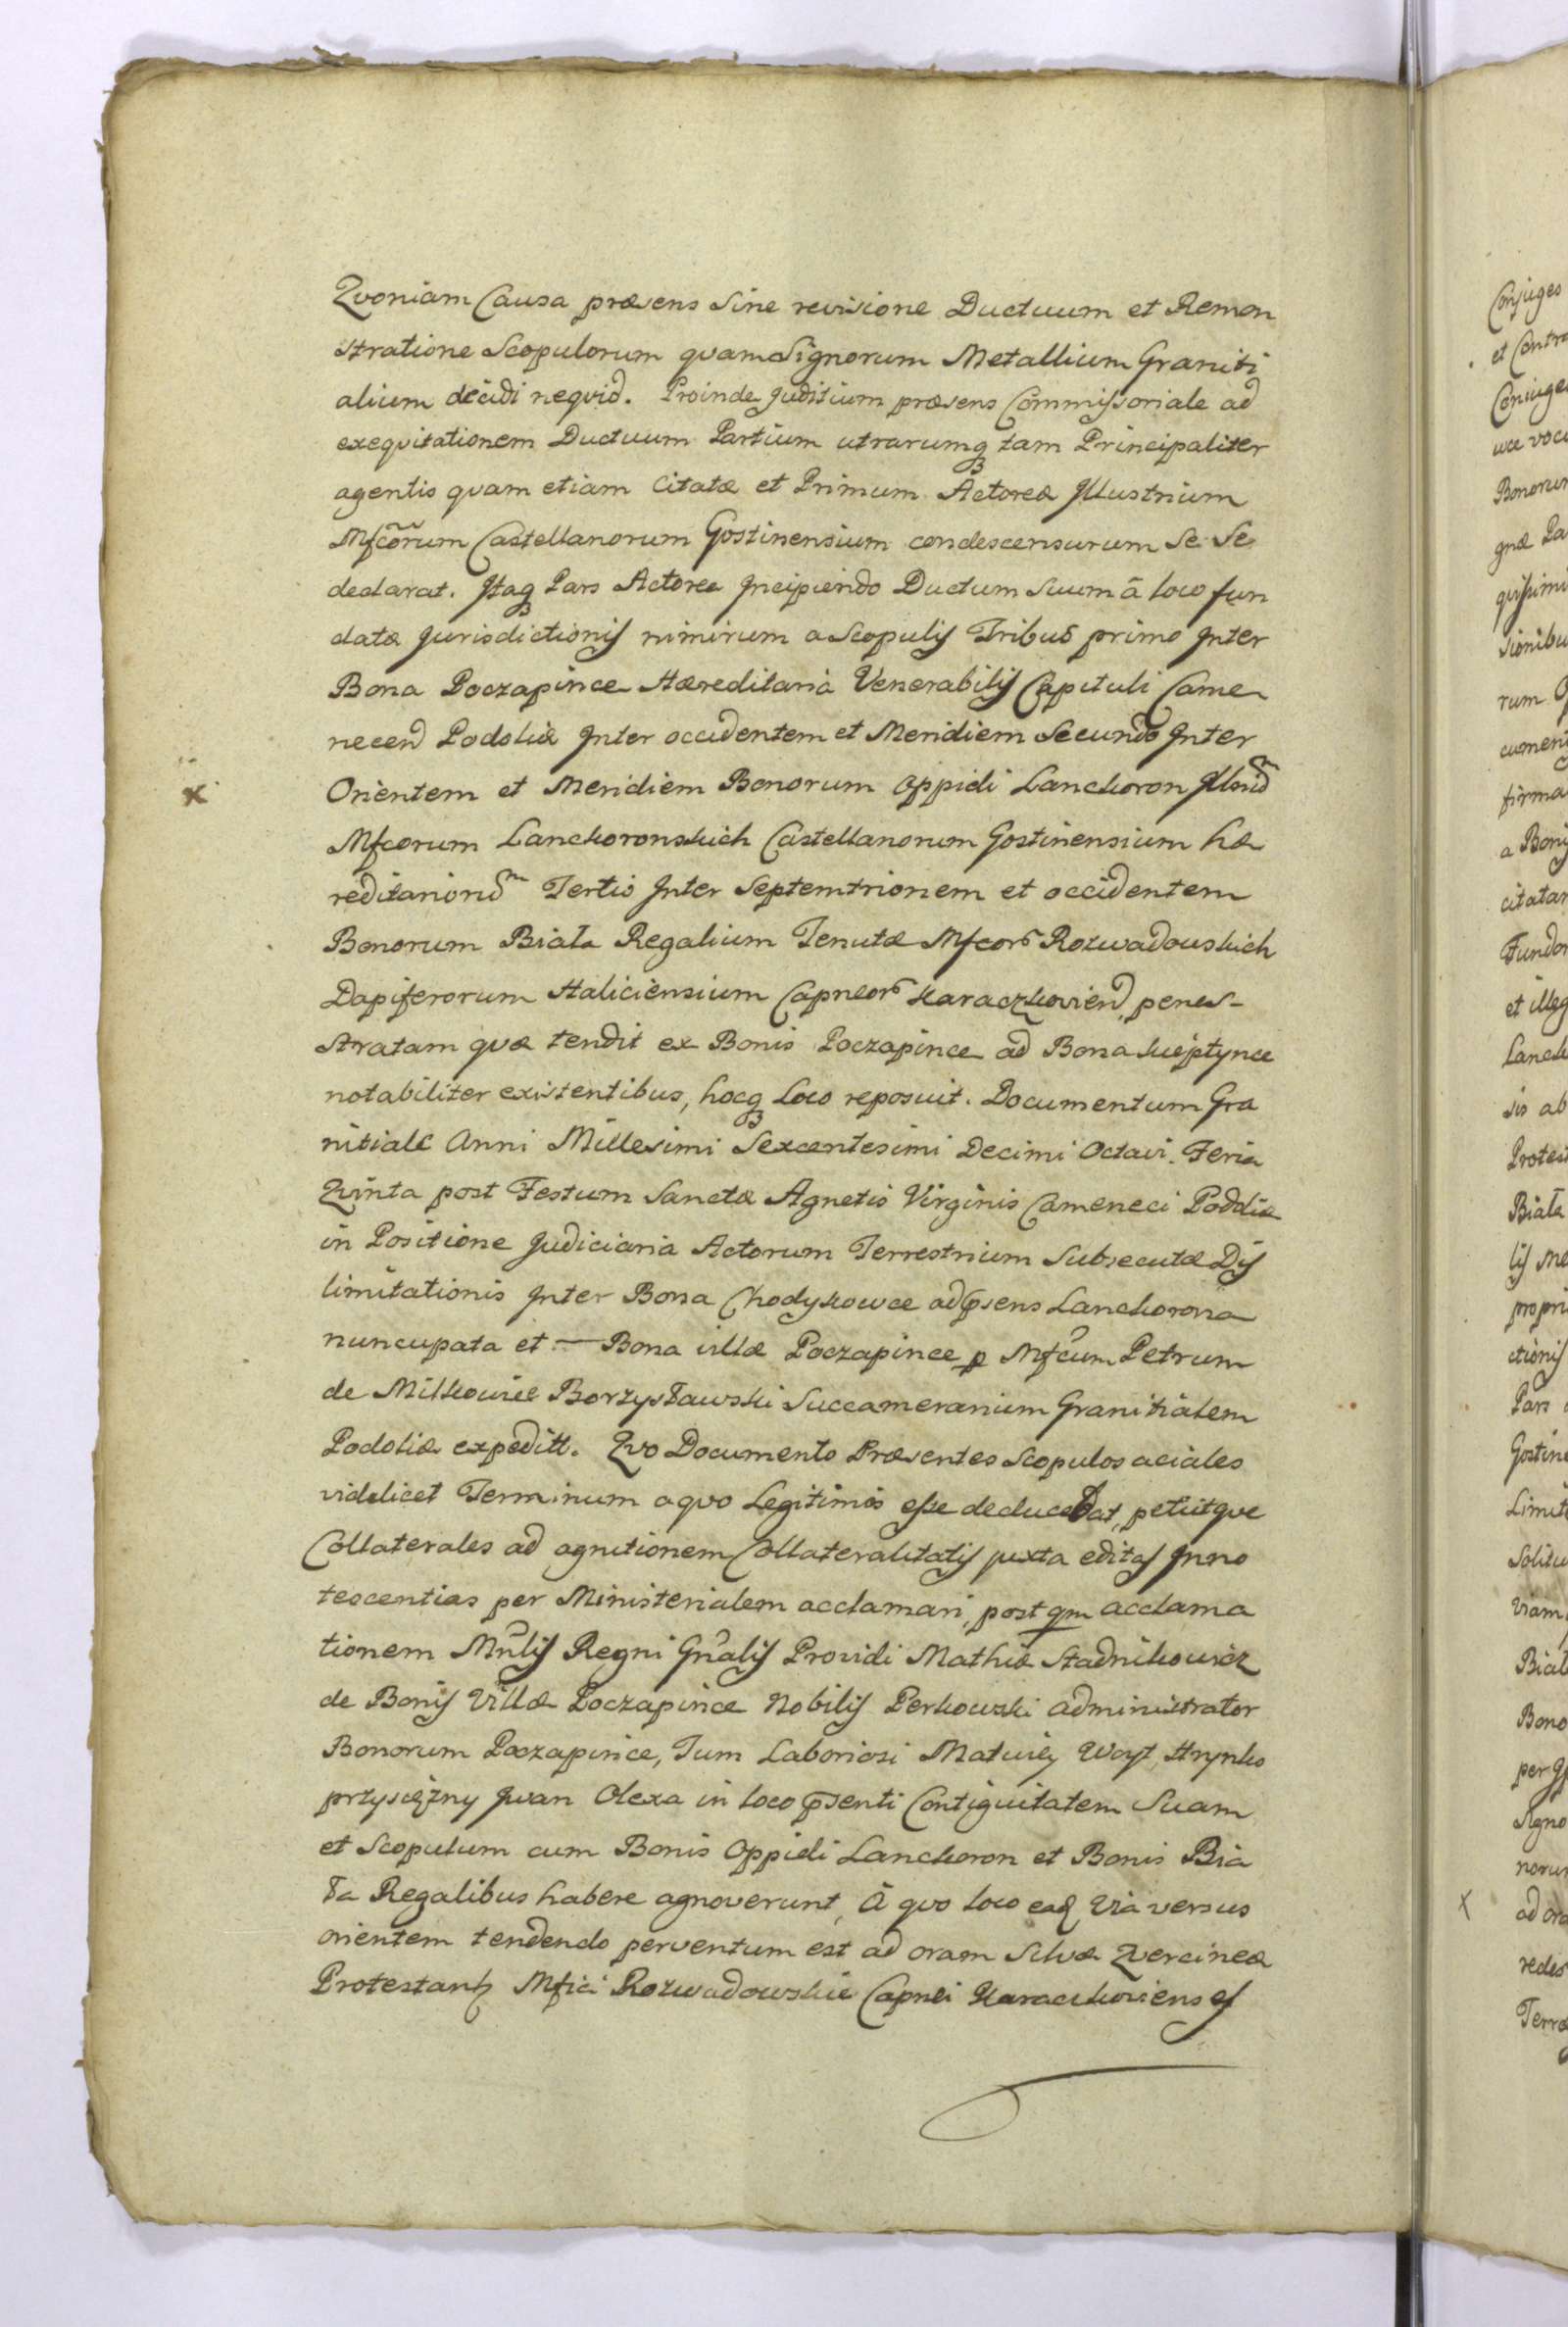 Qvoniam Causa præsens Sine revisione Ductuum et Remon
stratione Scopulorum qvam Signorum Metallium Graniti
alium decidi neqvid. Proinde Juditium præsens Commissoriale ad
exeqvitationem Ductuum Partium utrarumq tam Principaliter
agentis qvam etiam Citatæ et Primum Actoreæ Jllustrium
Mfcorum Castellanorum Gostinensium condescensurum Se Se
declarat. Jtaq Pars Actorea Jncipiendo Ductum Suum ā loco fun
datæ Jurisdictionis nimirum a Scopulis Tribus primo Jnter
Bona Poczapince Hæreditaria Venerabilis Capituli Came
necen Podoliæ Jnter occidentem et Meridiem Secundo Jnter
x Orientem et Meridiem Bonorum Oppidi Lanckoron
Mfcorum Lanckoronskich Castellanorum Gostinensium hæ
reditariorum Tertio Jnter Septemtrionem et occidentem
Bonorum Biała Regalium Tenutæ Mfcor Rozwadowskich
Dapiferorum Haliciensium Capneor Karaczkovien, penes
Stratam qvæ tendit ex Bonis Poczapince ad Bona
notabiliter existentibus, hocq Loco reposuit. Documentum Gra
nitiale Anni Millesimi Sexcentesimi Decimi Octavi. Feria
Qvinta post Festum Sanctæ Agnetis Virginis Cameneci Podoliæ
in Positione Judiciaria Actorum Terrestrium Subsecutæ Dis
limitationis Jnter Bona Chodykowce ad psens Lanckorona
nuncupata et — Bona villæ Poczapince p Mfcum Petrum
de Milkowice Borzysławski Succamerarium Granitialem
Podoliæ expeditt. Qvo Documento Præsentes Scopulos aciales
videlicet Terminum a qvo Legitimos esse deducebat, petiitqve
Collaterales ad agnitionem Collateralitatis juxta editas Jnno
tescentias per Ministerialem acclamari, post qm acclama
tionem Mnlis Regni Gnalis Providi Mathiæ Stadnikowicz
de Bonis Villæ Poczapince Nobilis Perkowski administrator
Bonorum Poczapince, Tum Laboriosi Matwiey Woyt, Hrynko
przysiężny Jwan Olexa in loco psenti Contiguitatem Suam
et Scopulum cum Bonis Oppidi Lanckoron et Bonis Bia
ła Regalibus habere agnoverunt, Â qvo loco ead Via versus
orientem tendendo perventum est ad oram Silvæ Qvercineæ
Protestant Mfici Rozwadowskie Capnei Karaczkovienses
Conjuges
et Contra
Coniuges
Bonorum
rum
firma
a Bonis
citatar
Fundor
et illeg
Lanck
sis ab
Biała
propri
ctionis
Pars
Gostine
Limit
viam
Biał
Bono
Signo
x ad ora
redes
Terræ